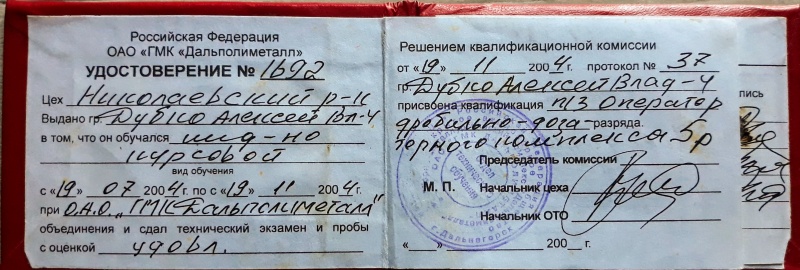 Российская Федерация
ОАО «ГМК «Дальполиметалл»
УДОСТОВЕРЕНИЕ № 1692
Цех Николаевский р-к
Выдано гр. Дубко Алексей Вл-ч
в том, что он обучался инд-но
курсовой
вид обучения
с «19» 07 2004 г. по с «19» 11 2004 г.
при О.А.О. „ГМК Дальполиметалл"
объединения и сдал технический экзамен и пробы
с оценкой удовл.
Решением квалификационной комиссии
от «19» 11 2004 г. протокол № 37
гр. Дубко Алексей Влад-ч
присвоена квалификация п/з Оператор
дробильно-доза- разряда.
торного комплекса 5р
Председатель комиссии
М. П. Начальник цеха
Начальник ОТО
«___» ______ 200__ г.
пись
г.Дальнегорск